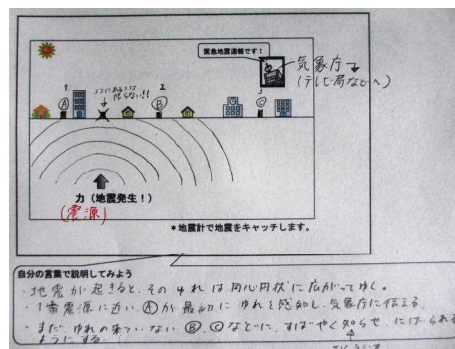 緊急地震速報です!
気象庁
(テレビ局などへ)
1
2
3
ココにあるとは
限らない!!
A
B
C
力(地震発生!)
(震源)
*地震計で地震をキャッチします。
自分の言葉で説明してみよう
・地震が起きると、そのゆれは同心円状に広がってゆく。
・1番震源に近いⒶが最初にゆれを感知し、気象庁に伝える。
・まだ、ゆれの来ていないⒷ、Ⓒなどに、すばやく知らせ、にげられる
ようにする。